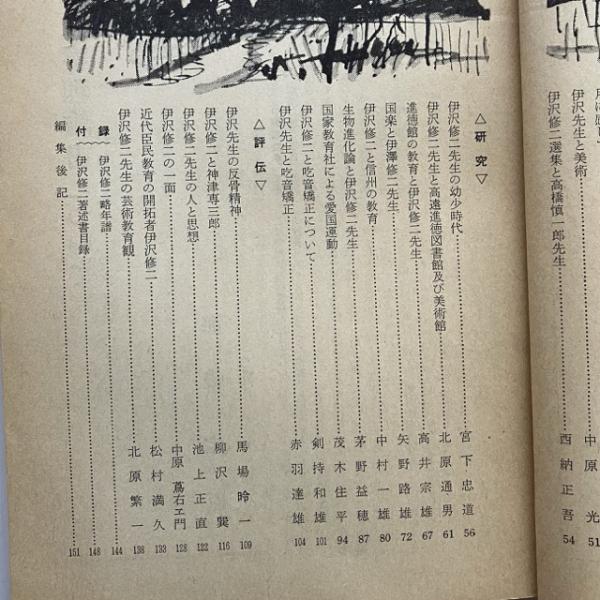 月に感じ
伊沢先生と美術 中原光 51
伊沢修二選集と高橋慎一郎先生 西納正吾 54
△研究▽
伊沢修二先生の幼少時代 宮下忠道 56
伊沢修二先生と高遠進徳図書館及び美術館 北原通男 61
進徳館の教育と伊沢修二先生 高井宗雄 67
国楽と伊澤修二先生 矢野路雄 72
伊沢修二と信州の教育 中村一雄 80
生物進化論と伊沢修二先生 茅野益穂 87
国家教育社による愛国運動 茂木住平 94
伊沢修二と吃音矯正について 剣持和雄 101
伊沢先生と吃音矯正 赤羽達雄 104
△評伝▽
伊沢先生の反骨精神 馬場晗一 109
伊沢修二と神津専三郎 柳沢巽 116
伊沢修二先生の人と思想 池上正直 122
伊沢修二の一面 中原蔦右ヱ門 128
近代臣民教育の開拓者伊沢修二 松村満久 133
伊沢修二先生の芸術教育観 北原繁一 138
付録
伊沢修二略年譜 144
伊沢修二著述書目録 148
編集後記 151